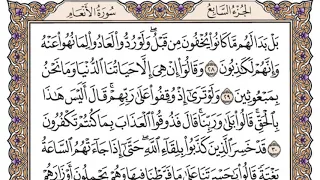 سُورَةُ الأَنْعَامِ الجُزْءُ السَّابِعُ
بَلْ بَدَا لَهُم مَّا كَانُوا۟ يُخْفُونَ مِن قَبْلُ ۖ وَلَوْ رُدُّوا۟ لَعَادُوا۟ لِمَا نُهُوا۟ عَنْهُ
وَإِنَّهُمْ لَكَٰذِبُونَ ٢٨ وَقَالُوٓا۟ إِنْ هِىَ إِلَّا حَيَاتُنَا ٱلدُّنْيَا وَمَا نَحْنُ
بِمَبْعُوثِينَ ٢٩ وَلَوْ تَرَىٰٓ إِذْ وُقِفُوا۟ عَلَىٰ رَبِّهِمْ ۚ قَالَ أَلَيْسَ هَٰذَا
بِٱلْحَقِّ ۚ قَالُوا۟ بَلَىٰ وَرَبِّنَا ۚ قَالَ فَذُوقُوا۟ ٱلْعَذَابَ بِمَا كُنتُمْ تَكْفُرُونَ ٣٠
قَدْ خَسِرَ ٱلَّذِينَ كَذَّبُوا۟ بِلِقَآءِ ٱللَّهِ ۖ حَتَّىٰٓ إِذَا جَآءَتْهُمُ ٱلسَّاعَةُ
بَغْتَةً قَالُوا۟ يَٰحَسْرَتَنَا عَلَىٰ مَا فَرَّطْنَا فِيهَا وَهُمْ يَحْمِلُونَ أَوْزَارَهُمْ